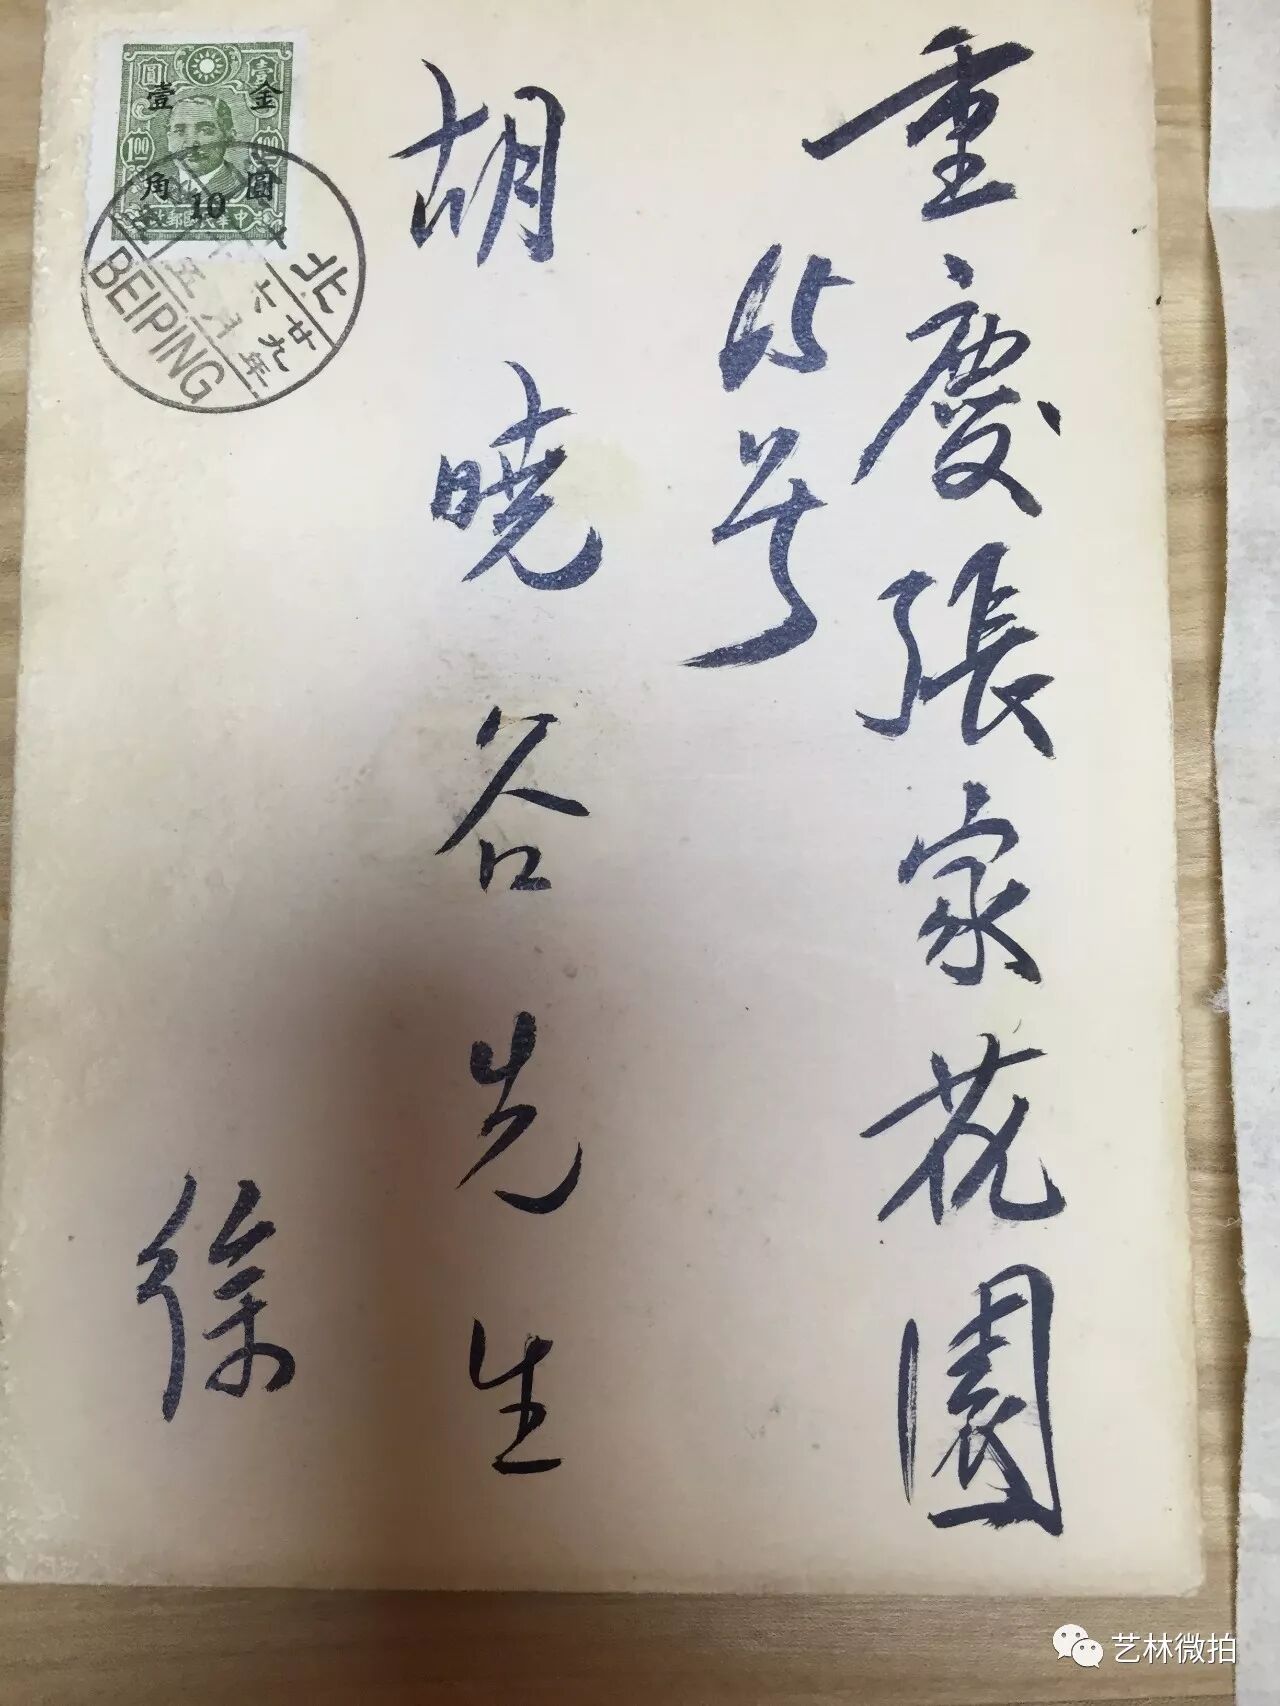 重慶張家花園
15号
胡曉谷先生
徐
金圓
壹角
10
壹圓
1.00
1.00
北
廿九年
六月
五
BEIPING
艺林微拍